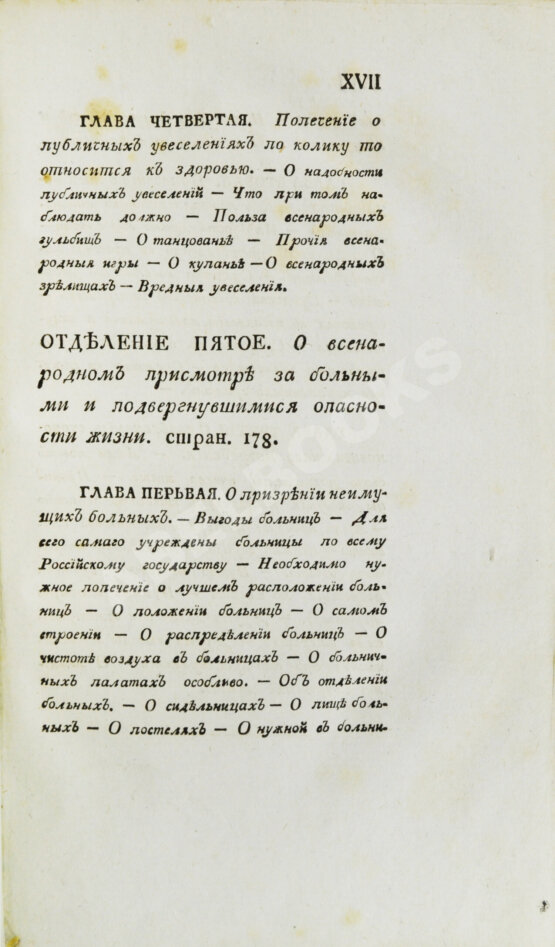 XVII
ГЛАВА ЧЕТВЕРТАЯ. Попеченіе о
публичныхъ увеселеніяхъ по колику то
относится къ здоровью. — О надобности
публичныхъ увеселеній — Что при томъ на-
блюдать должно — Польза всенародныхъ
гульбищъ — О танцованьѣ — Прочія всена-
родныя игры — О купаньѣ — О всенародныхъ
зрѣлищахъ — Вредныя увеселенія.
ОТДѢЛЕНІЕ ПЯТОЕ. О всена-
родномъ присмотрѣ за больны-
ми и подвергнувшимися опасно-
сти жизни. стран. 178.
ГЛАВА ПЕРЬВАЯ. О призрѣніи неиму-
щихъ больныхъ. — Выгоды больницъ — Для
сего самаго учреждены больницы по всему
Россійскому государству — Необходимо ну-
жное попеченіе о лучшемъ расположеніи боль-
ницъ — О положеніи больницъ — О самомъ
строеніи — О распредѣленіи больницъ — О
чистотѣ воздуха въ больницахъ — О больнич-
ныхъ палатахъ особливо. — Объ отдѣленіи
больныхъ. — О сидѣльницахъ — О пищѣ боль-
ныхъ — О постеляхъ — О нужной въ больни-
BOOKS